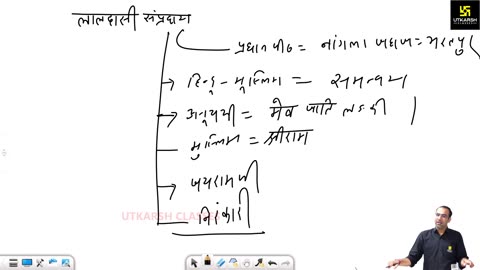 लालदासी संप्रदाय
प्रधान पीठ = नांगला जहाज = भरतपु
हिन्दू - मुस्लिम = समन्वय
अनुयायी = मेव जाति
मुस्लिम = श्रीराम
जयरामजी
निरंकारी
UTKARSH CLASSES
UTKARSH